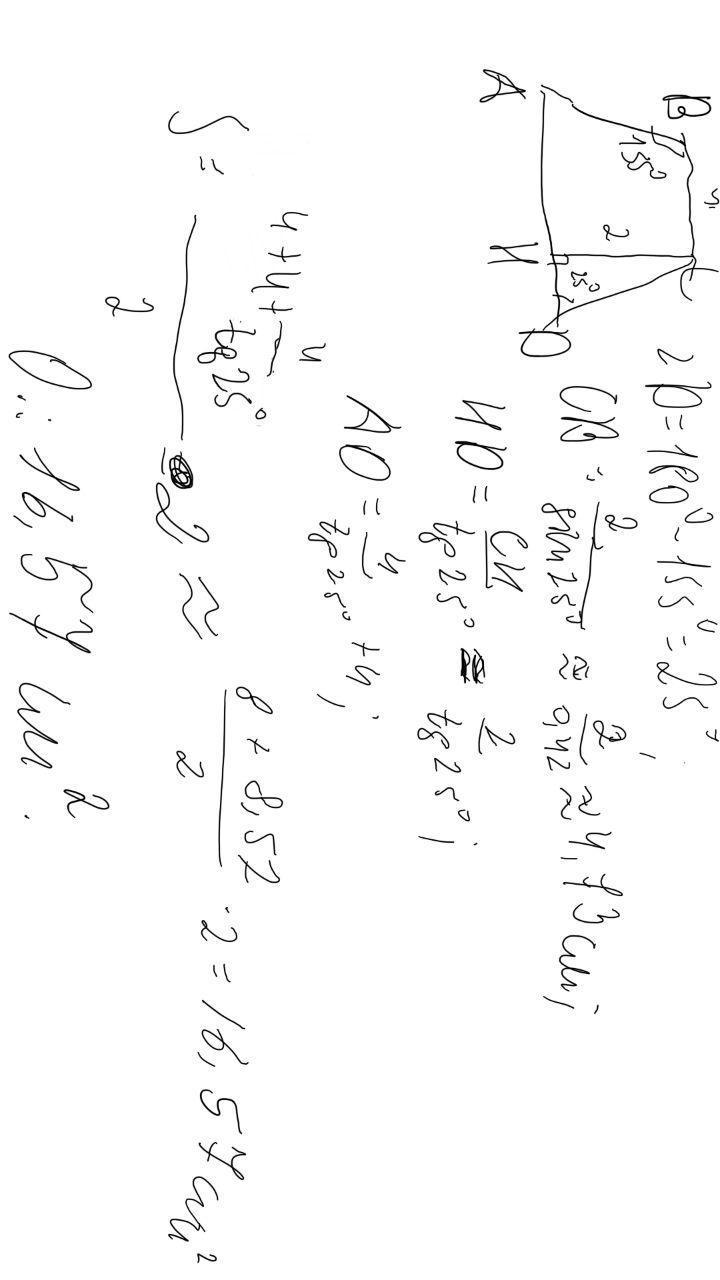 B 4 C
155°
2
25°
A H D
∠D = 180° - 155° = 25°;
CD = 2/sin25° ≈ 2/0,42 ≈ 4,73 см;
HD = CH/tg25° = 2/tg25°;
AD = 4/tg25° + 4;
S = (4 + 4 + 4/tg25°)/2 · 2 ≈ (8 + 8,57)/2 · 2 = 16,57 см²
О.: 16,57 см².